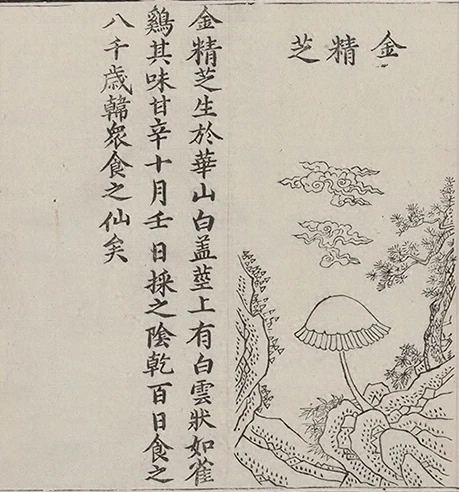 金精芝
金精芝生於華山白盖莖上有白雲狀如雀
鷄其味甘辛十月壬日採之陰乾百日食之
八千歲韓眾食之仙矣